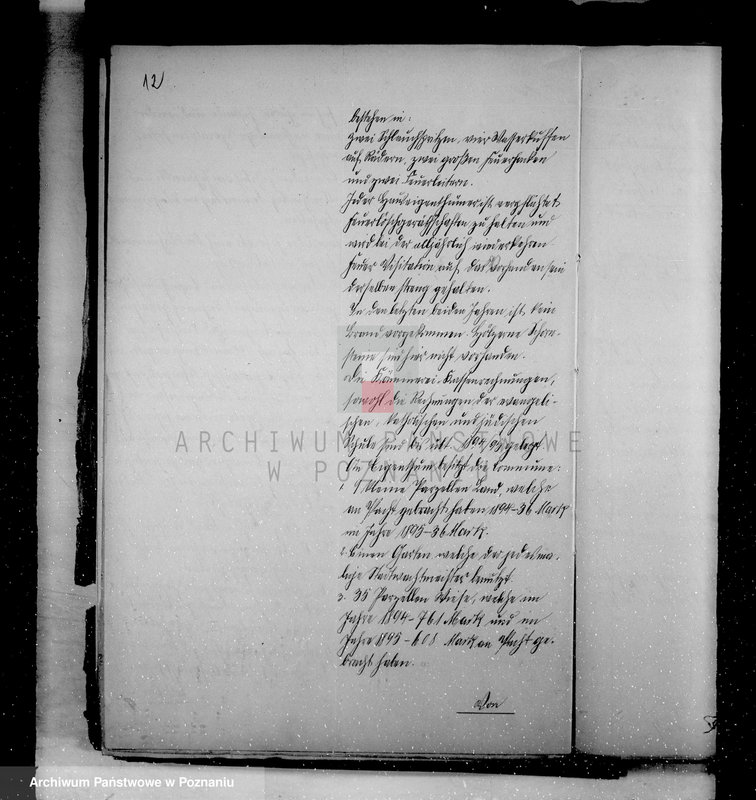 12
bestehen in:
zwei Schlauchspritzen, vier Wasserkuffen
auf Rädern, zwei großen Feuerhacken
und zwei Feuerleitern.
Jeder Hauseigenthümer ist verpflichtet
Feuerlöschgeräthschaften zu halten und
wird bei der alljährlich wiederkehren
der Visitation auf das Vorhandensein
derselben streng gehalten.
In den letzten beiden Jahren ist kein
Brand vorgekommen. Hölzerne Schorn-
steine sind hier nicht vorhanden.
Die Kämmerei-Kassenrechnungen,
sowohl die Rechnungen der evangeli-
schen, katholischen und jüdischen
Schule sind bis ult. 1894/95 gelegt
An Eigenthum besitzt die Commune:
1. kleine Parzellen Land, welche
an Pacht gebracht haben 1894-36 Mark
im Jahre 1895-36 Mark.
2. Einen Garten welche der jedesma-
lige Stadtwachtmeister benutzt.
3. 35 Parzellen Wiese, welche im
Jahre 1894-761 Mark und im
Jahre 1895-608 Mark an Pacht ge-
bracht haben.
Von
ARCHIWUM PAŃSTWOWE
W POZNANIU
Archiwum Państwowe w Poznaniu